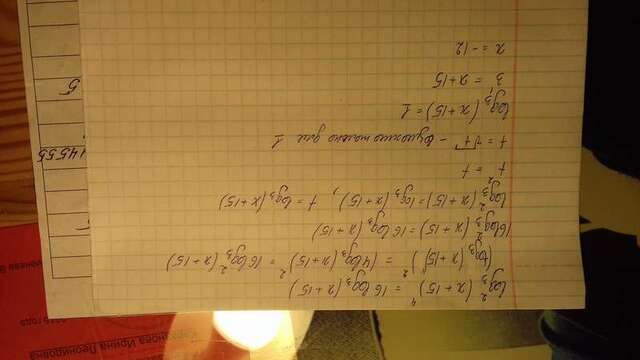 Карханова Ирина Леонидовна
2015 года
log₃²(x+15)⁴ = 16 log₃(x+15)
(log₃(x+15)⁴)² = (4log₃(x+15))² = 16log₃²(x+15)
16log₃²(x+15) = 16 log₃(x+15)
log₃²(x+15) = log₃(x+15), t = log₃(x+15)
t² = t
t = √t - возможно только для 1
14555
log₃(x+15) = 1
5
3¹ = x+15
x = -12